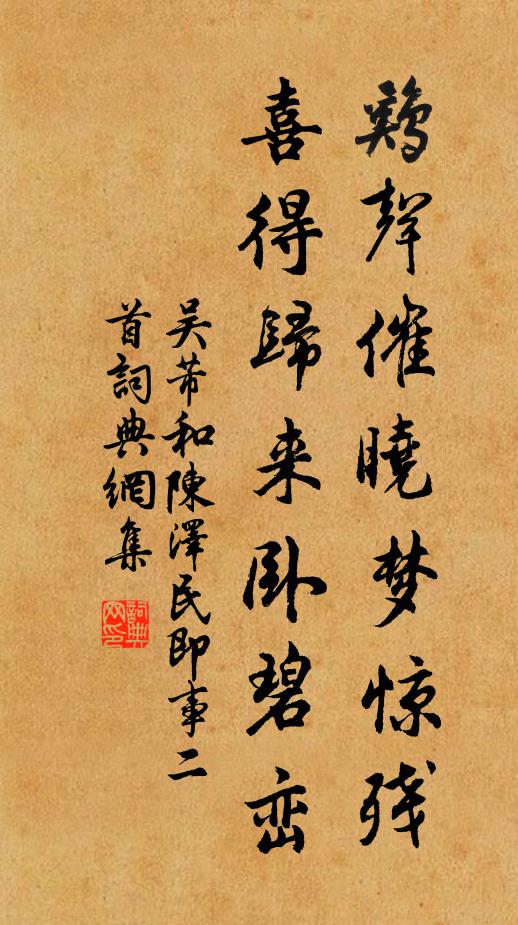 鷄聲催曉梦惊残
喜得歸来卧碧峦
吴芾和陳澤民即事二
首詞典網集
詞典网印